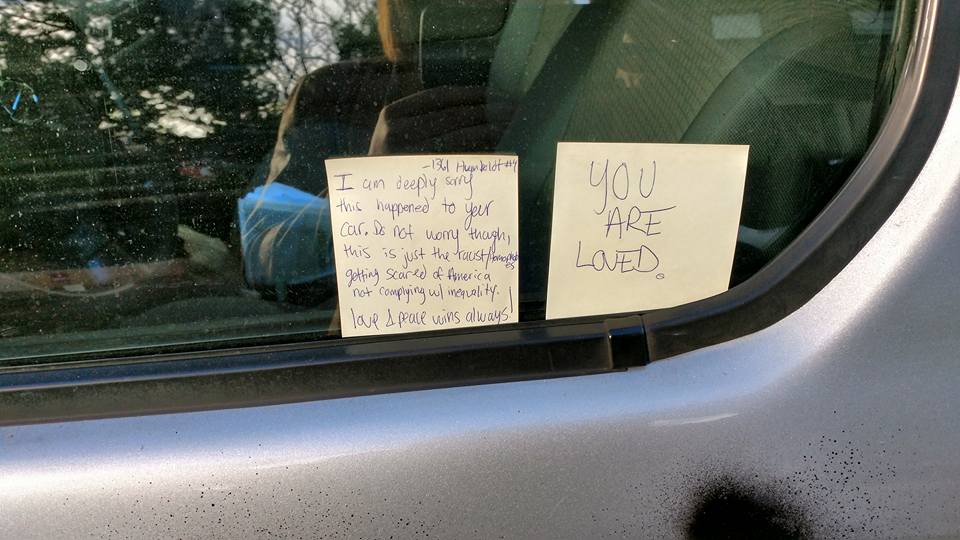 -1361 Humboldt #4
I am deeply sorry
this happened to your
car. Do not worry though,
this is just the racist/homophobes
getting scared of America
not complying w/ inequality.
love & peace wins always!
YOU
ARE
LOVED.